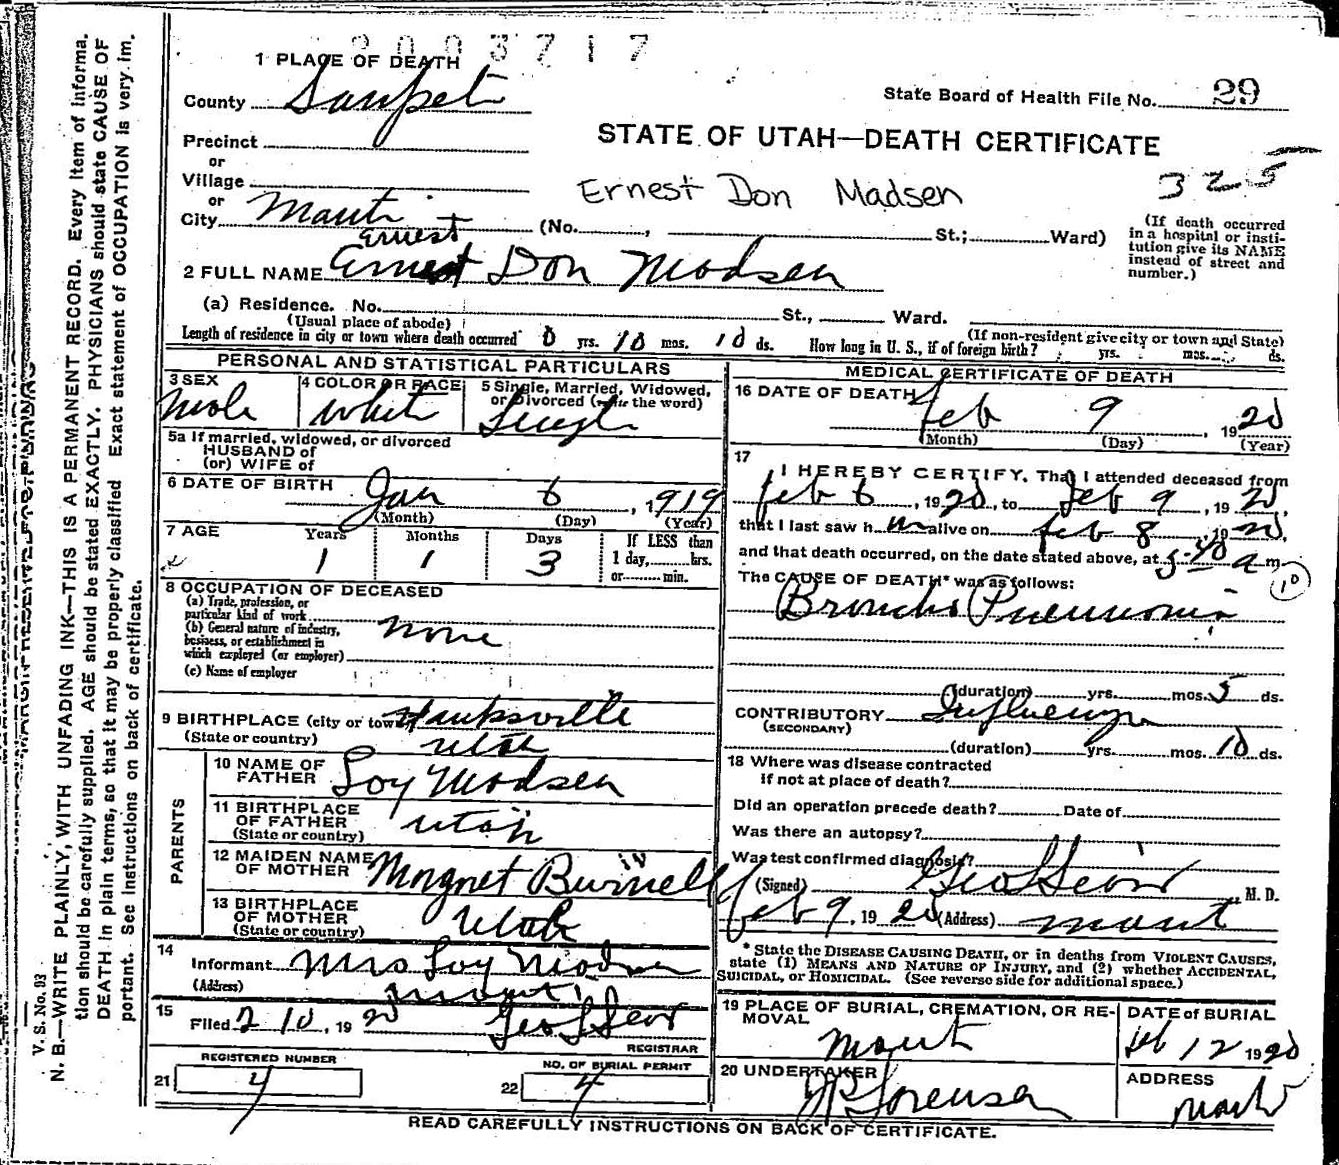 2003717
1 PLACE OF DEATH
County Sanpete
State Board of Health File No. 29
Precinct
STATE OF UTAH—DEATH CERTIFICATE
or
Village
Ernest Don Madsen
325
or
City Manti (No. , St.; Ward)
(If death occurred
in a hospital or insti-
tution give its NAME
instead of street and
number.)
Ernest
2 FULL NAME Ernest Don Madsen
(a) Residence. No. St., Ward.
(Usual place of abode)
(If non-resident give city or town and State)
Length of residence in city or town where death occurred 0 yrs. 10 mos. 10 ds. How long in U. S., if of foreign birth? yrs. mos. ds.
PERSONAL AND STATISTICAL PARTICULARS
3 SEX
Male
4 COLOR OR RACE
White
5 Single, Married, Widowed,
or Divorced (write the word)
Single
5a If married, widowed, or divorced
HUSBAND of
(or) WIFE of
6 DATE OF BIRTH
Jan 6, 1919
(Month) (Day) (Year)
7 AGE Years Months Days
1 1 3
If LESS than
1 day, hrs.
or min.
8 OCCUPATION OF DECEASED
(a) Trade, profession, or
particular kind of work
none
(b) General nature of industry,
business, or establishment in
which employed (or employer)
(c) Name of employer
9 BIRTHPLACE (city or town) Hanksville
(State or country) Utah
PARENTS
10 NAME OF
FATHER Loy Madsen
11 BIRTHPLACE
OF FATHER
(State or country) Utah
12 MAIDEN NAME
OF MOTHER Margret Burnell
13 BIRTHPLACE
OF MOTHER
(State or country) Utah
14
Informant Mrs Loy Madsen
(Address) Manti
15
Filed 2 10, 1920 Geo L Sears
REGISTRAR
REGISTERED NUMBER
21 4
NO. OF BURIAL PERMIT
22 4
MEDICAL CERTIFICATE OF DEATH
16 DATE OF DEATH
Feb 9, 1920
(Month) (Day) (Year)
17
I HEREBY CERTIFY, That I attended deceased from
Feb 6, 1920, to Feb 9, 1920,
that I last saw him alive on Feb 8, 1920,
and that death occurred, on the date stated above, at 5-40 a m.
The CAUSE OF DEATH* was as follows:
10
Broncho Pneumonia
(duration) yrs. mos. 5 ds.
CONTRIBUTORY Influenza
(SECONDARY)
(duration) yrs. mos. 10 ds.
18 Where was disease contracted
if not at place of death?
Did an operation precede death? Date of
Was there an autopsy?
Was test confirmed diagnosis?
(Signed) Geo L Sears, M. D.
Feb 9, 1920 (Address) Manti
* State the DISEASE CAUSING DEATH, or in deaths from VIOLENT CAUSES,
state (1) MEANS AND NATURE OF INJURY, and (2) whether ACCIDENTAL,
SUICIDAL, or HOMICIDAL. (See reverse side for additional space.)
19 PLACE OF BURIAL, CREMATION, OR RE-
MOVAL
Manti
DATE of BURIAL
Feb 12 1920
20 UNDERTAKER
Sorensen
ADDRESS
Manti
READ CAREFULLY INSTRUCTIONS ON BACK OF CERTIFICATE.
MARGIN RESERVED FOR BINDING
V. S. No. 93
N. B.—WRITE PLAINLY, WITH UNFADING INK—THIS IS A PERMANENT RECORD. Every item of informa-
tion should be carefully supplied. AGE should be stated EXACTLY. PHYSICIANS should state CAUSE OF
DEATH in plain terms, so that it may be properly classified. Exact statement of OCCUPATION is very im-
portant. See instructions on back of certificate.